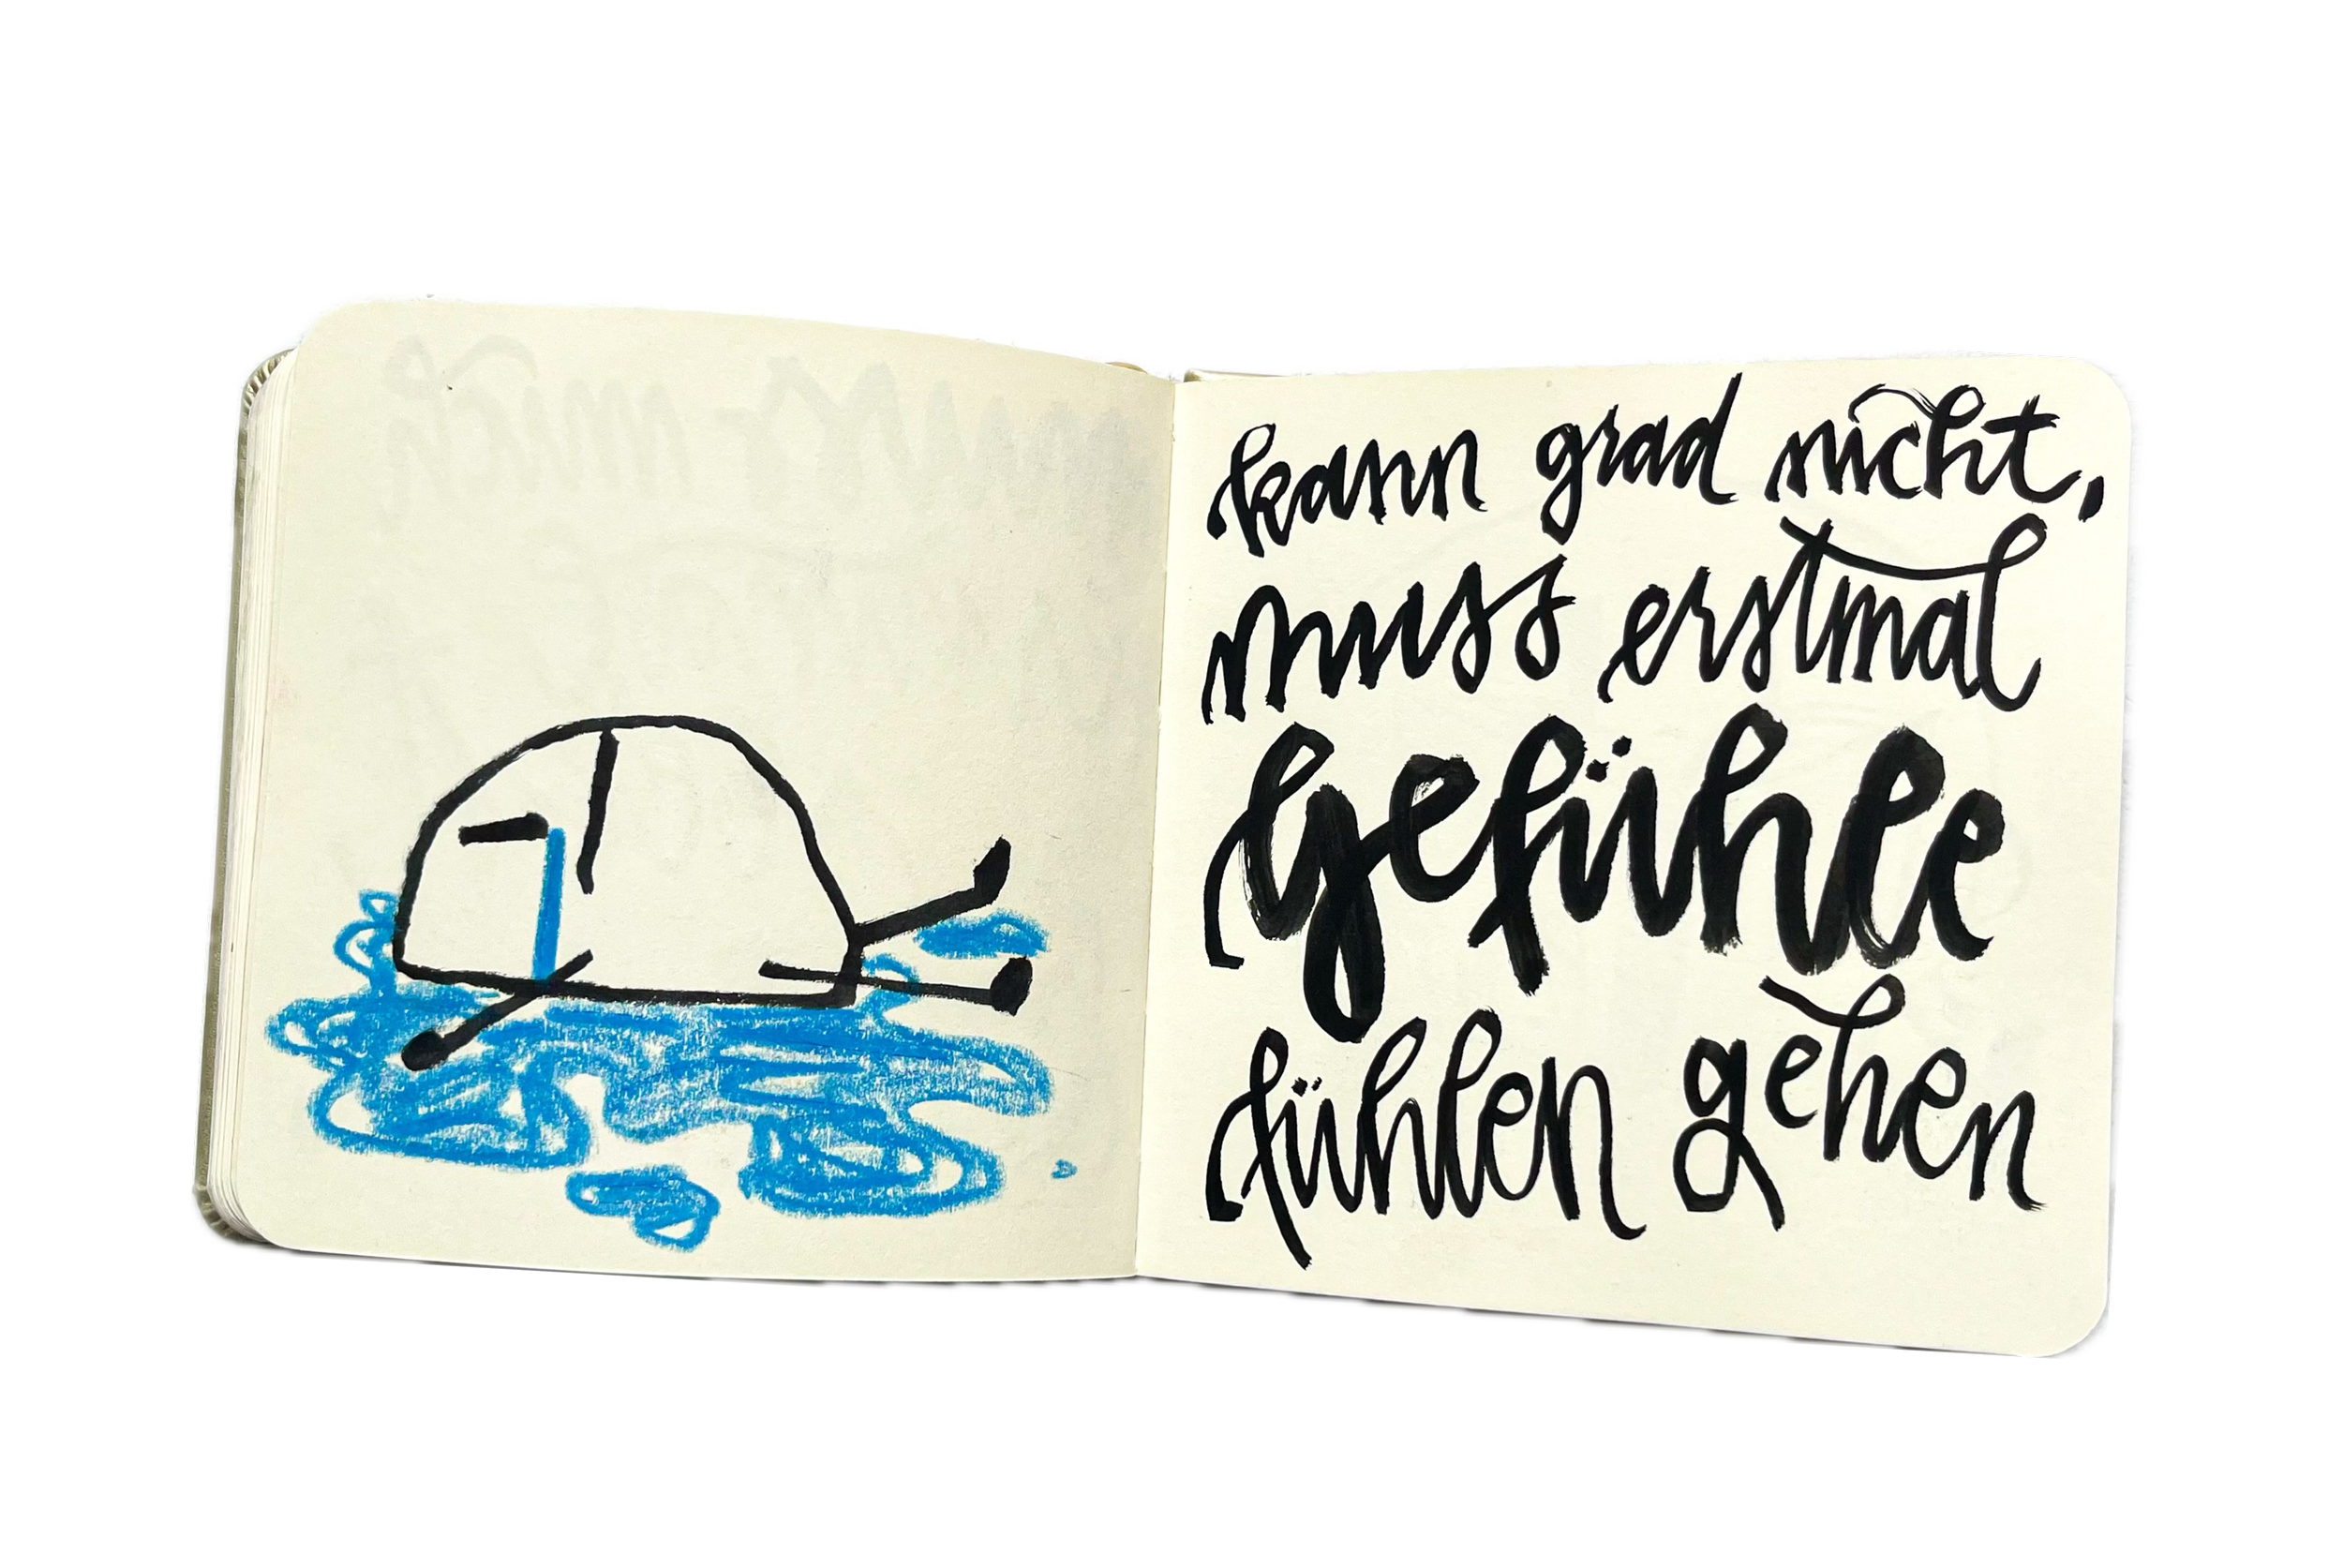 kann grad nicht,
muss erstmal
Gefühle
fühlen gehen